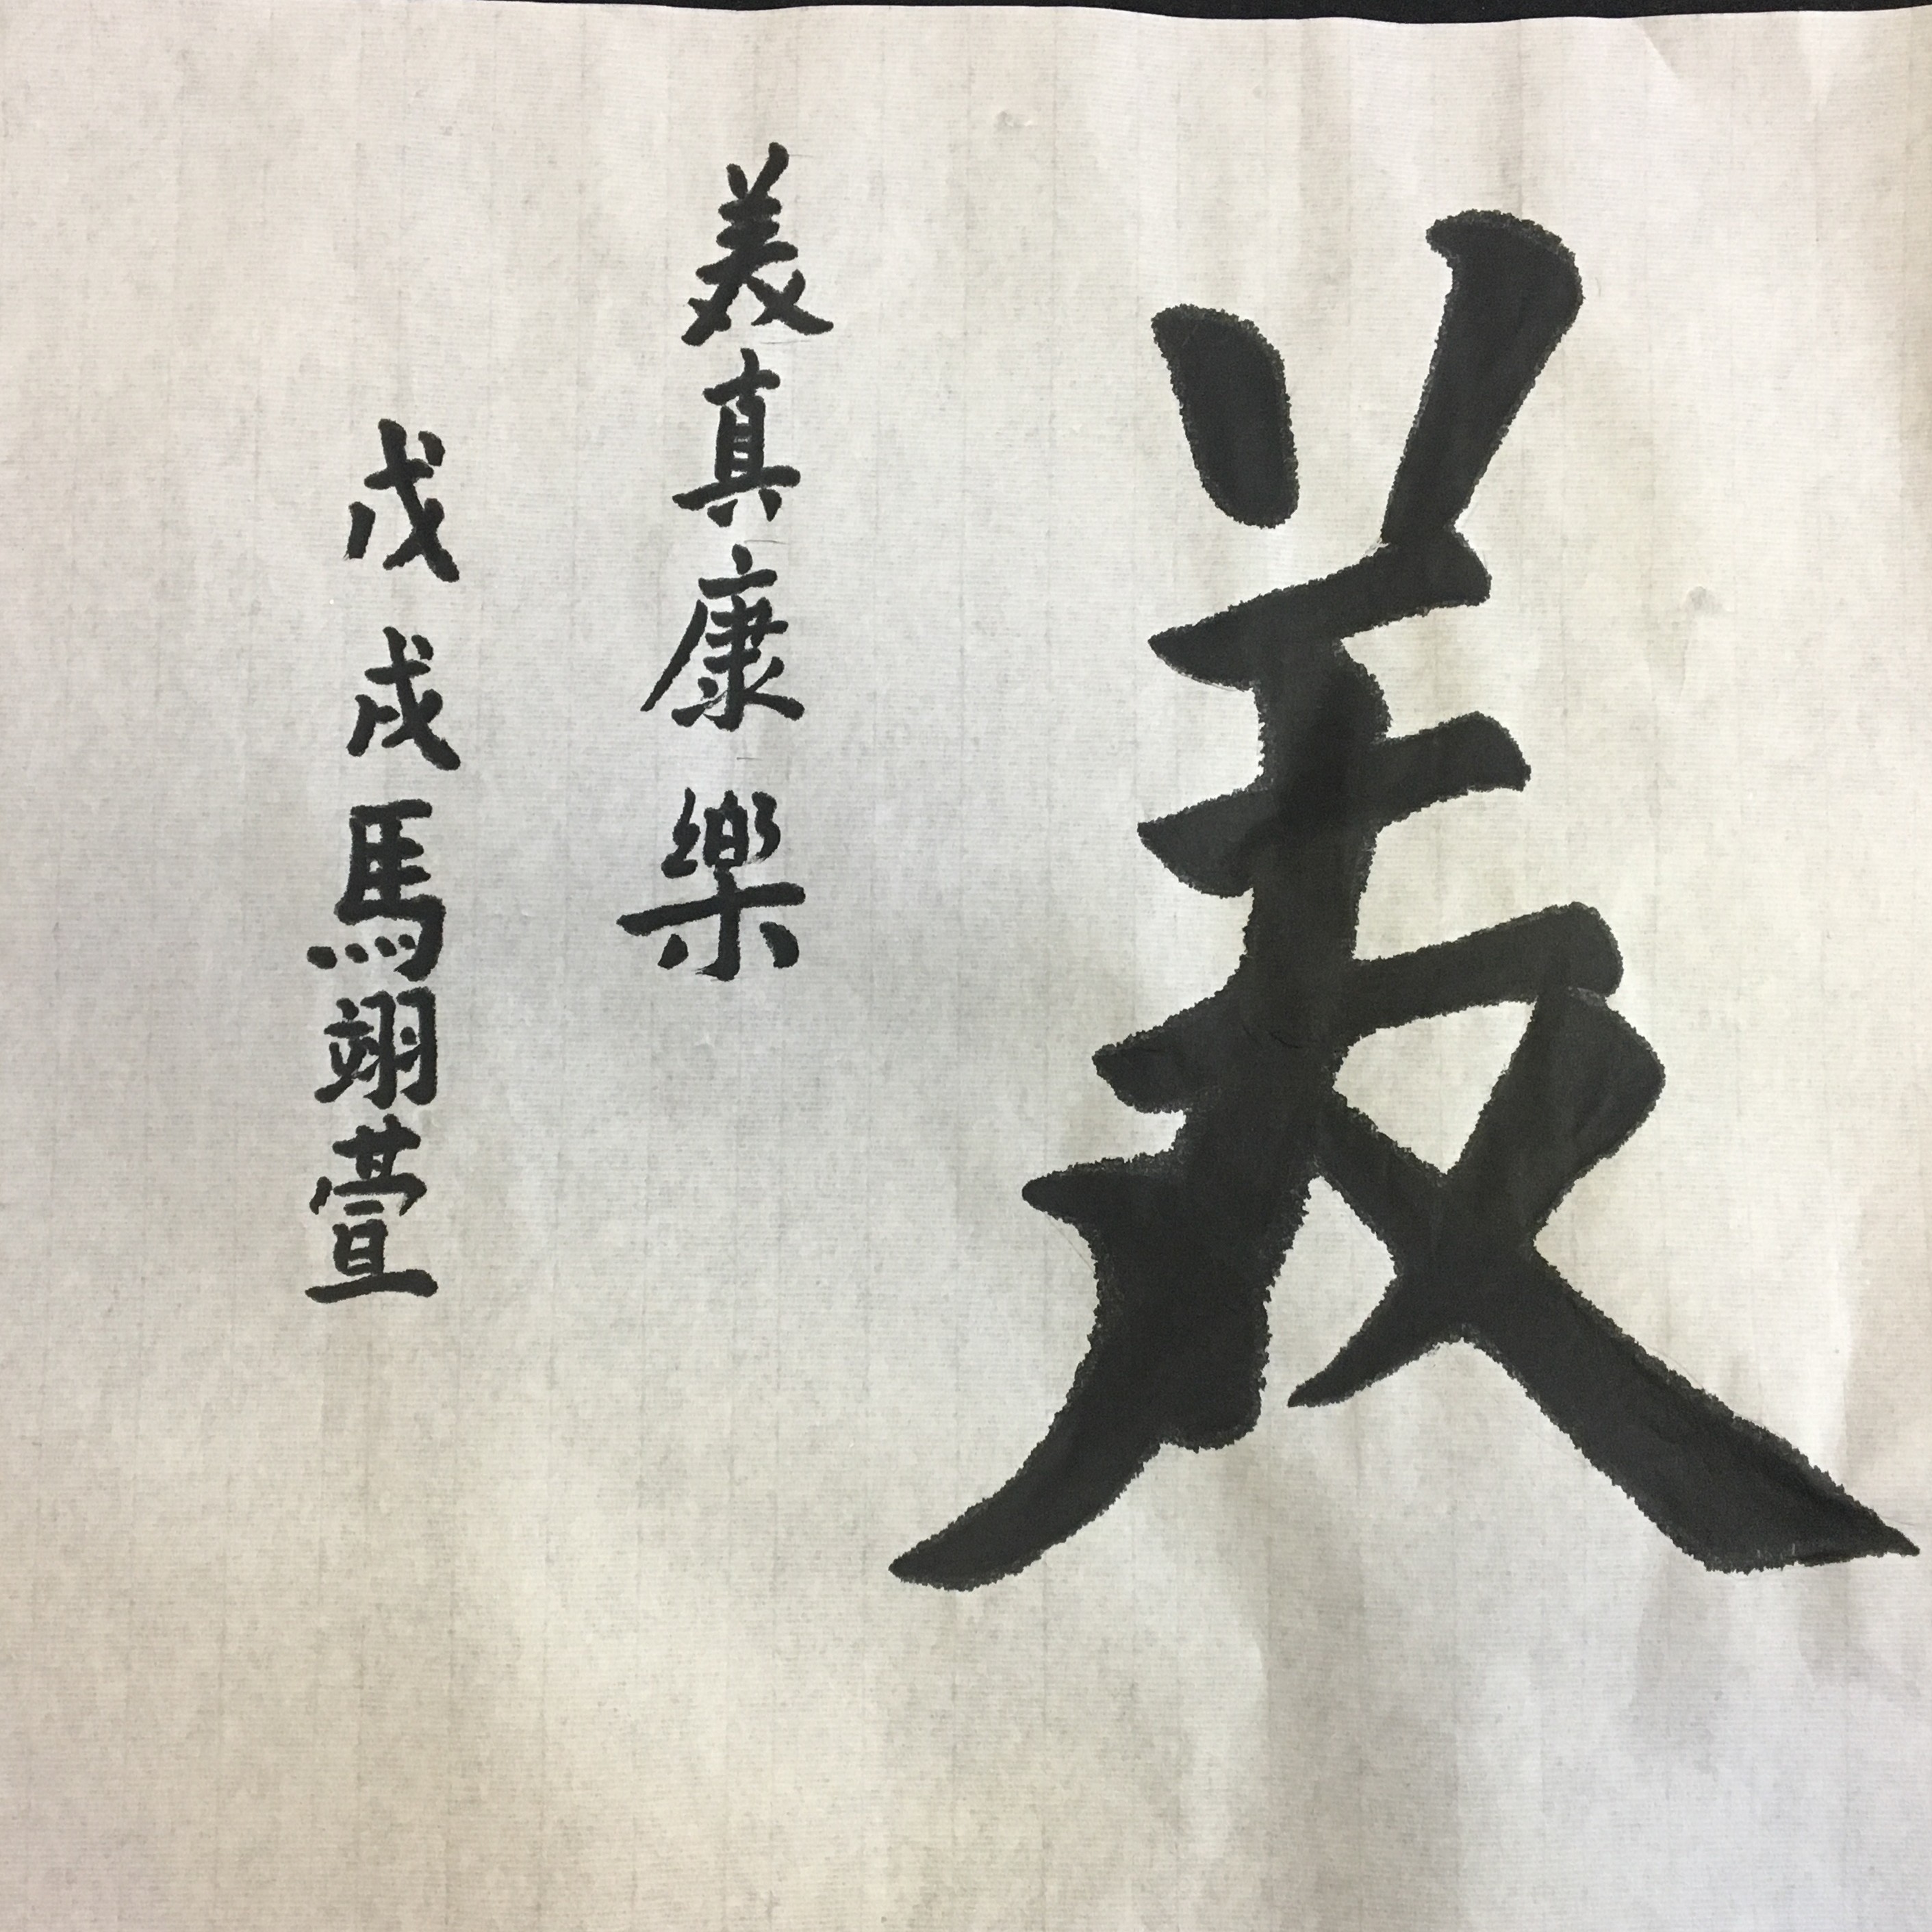 美
美真康樂
戊戌馬翊萱